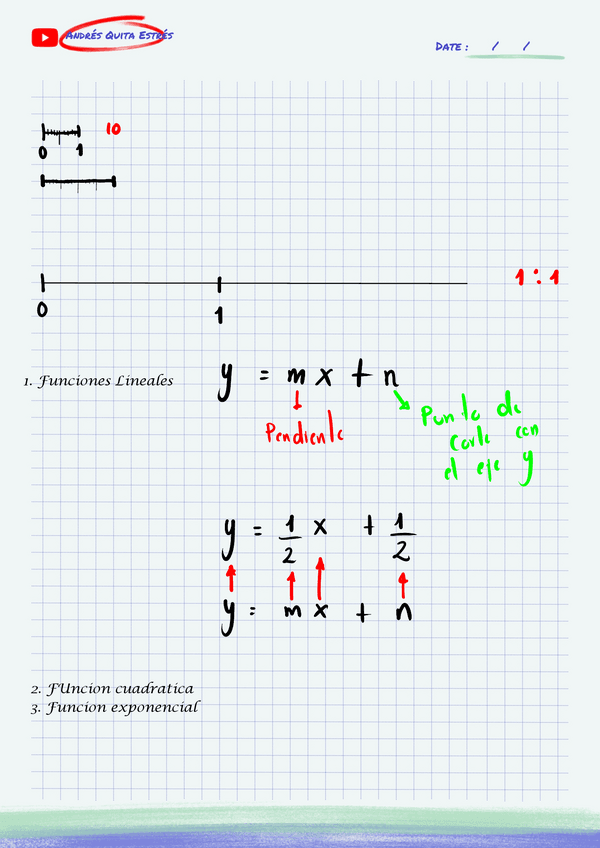 Andrés Quita Estrés
Date: / /
10
0 1
1:1
0 1
1. Funciones Lineales
y = mx + n
Pendiente
Punto de
corte con
el eje y
y = 1/2 x + 1/2
y = mx + n
2. FUncion cuadratica
3. Funcion exponencial